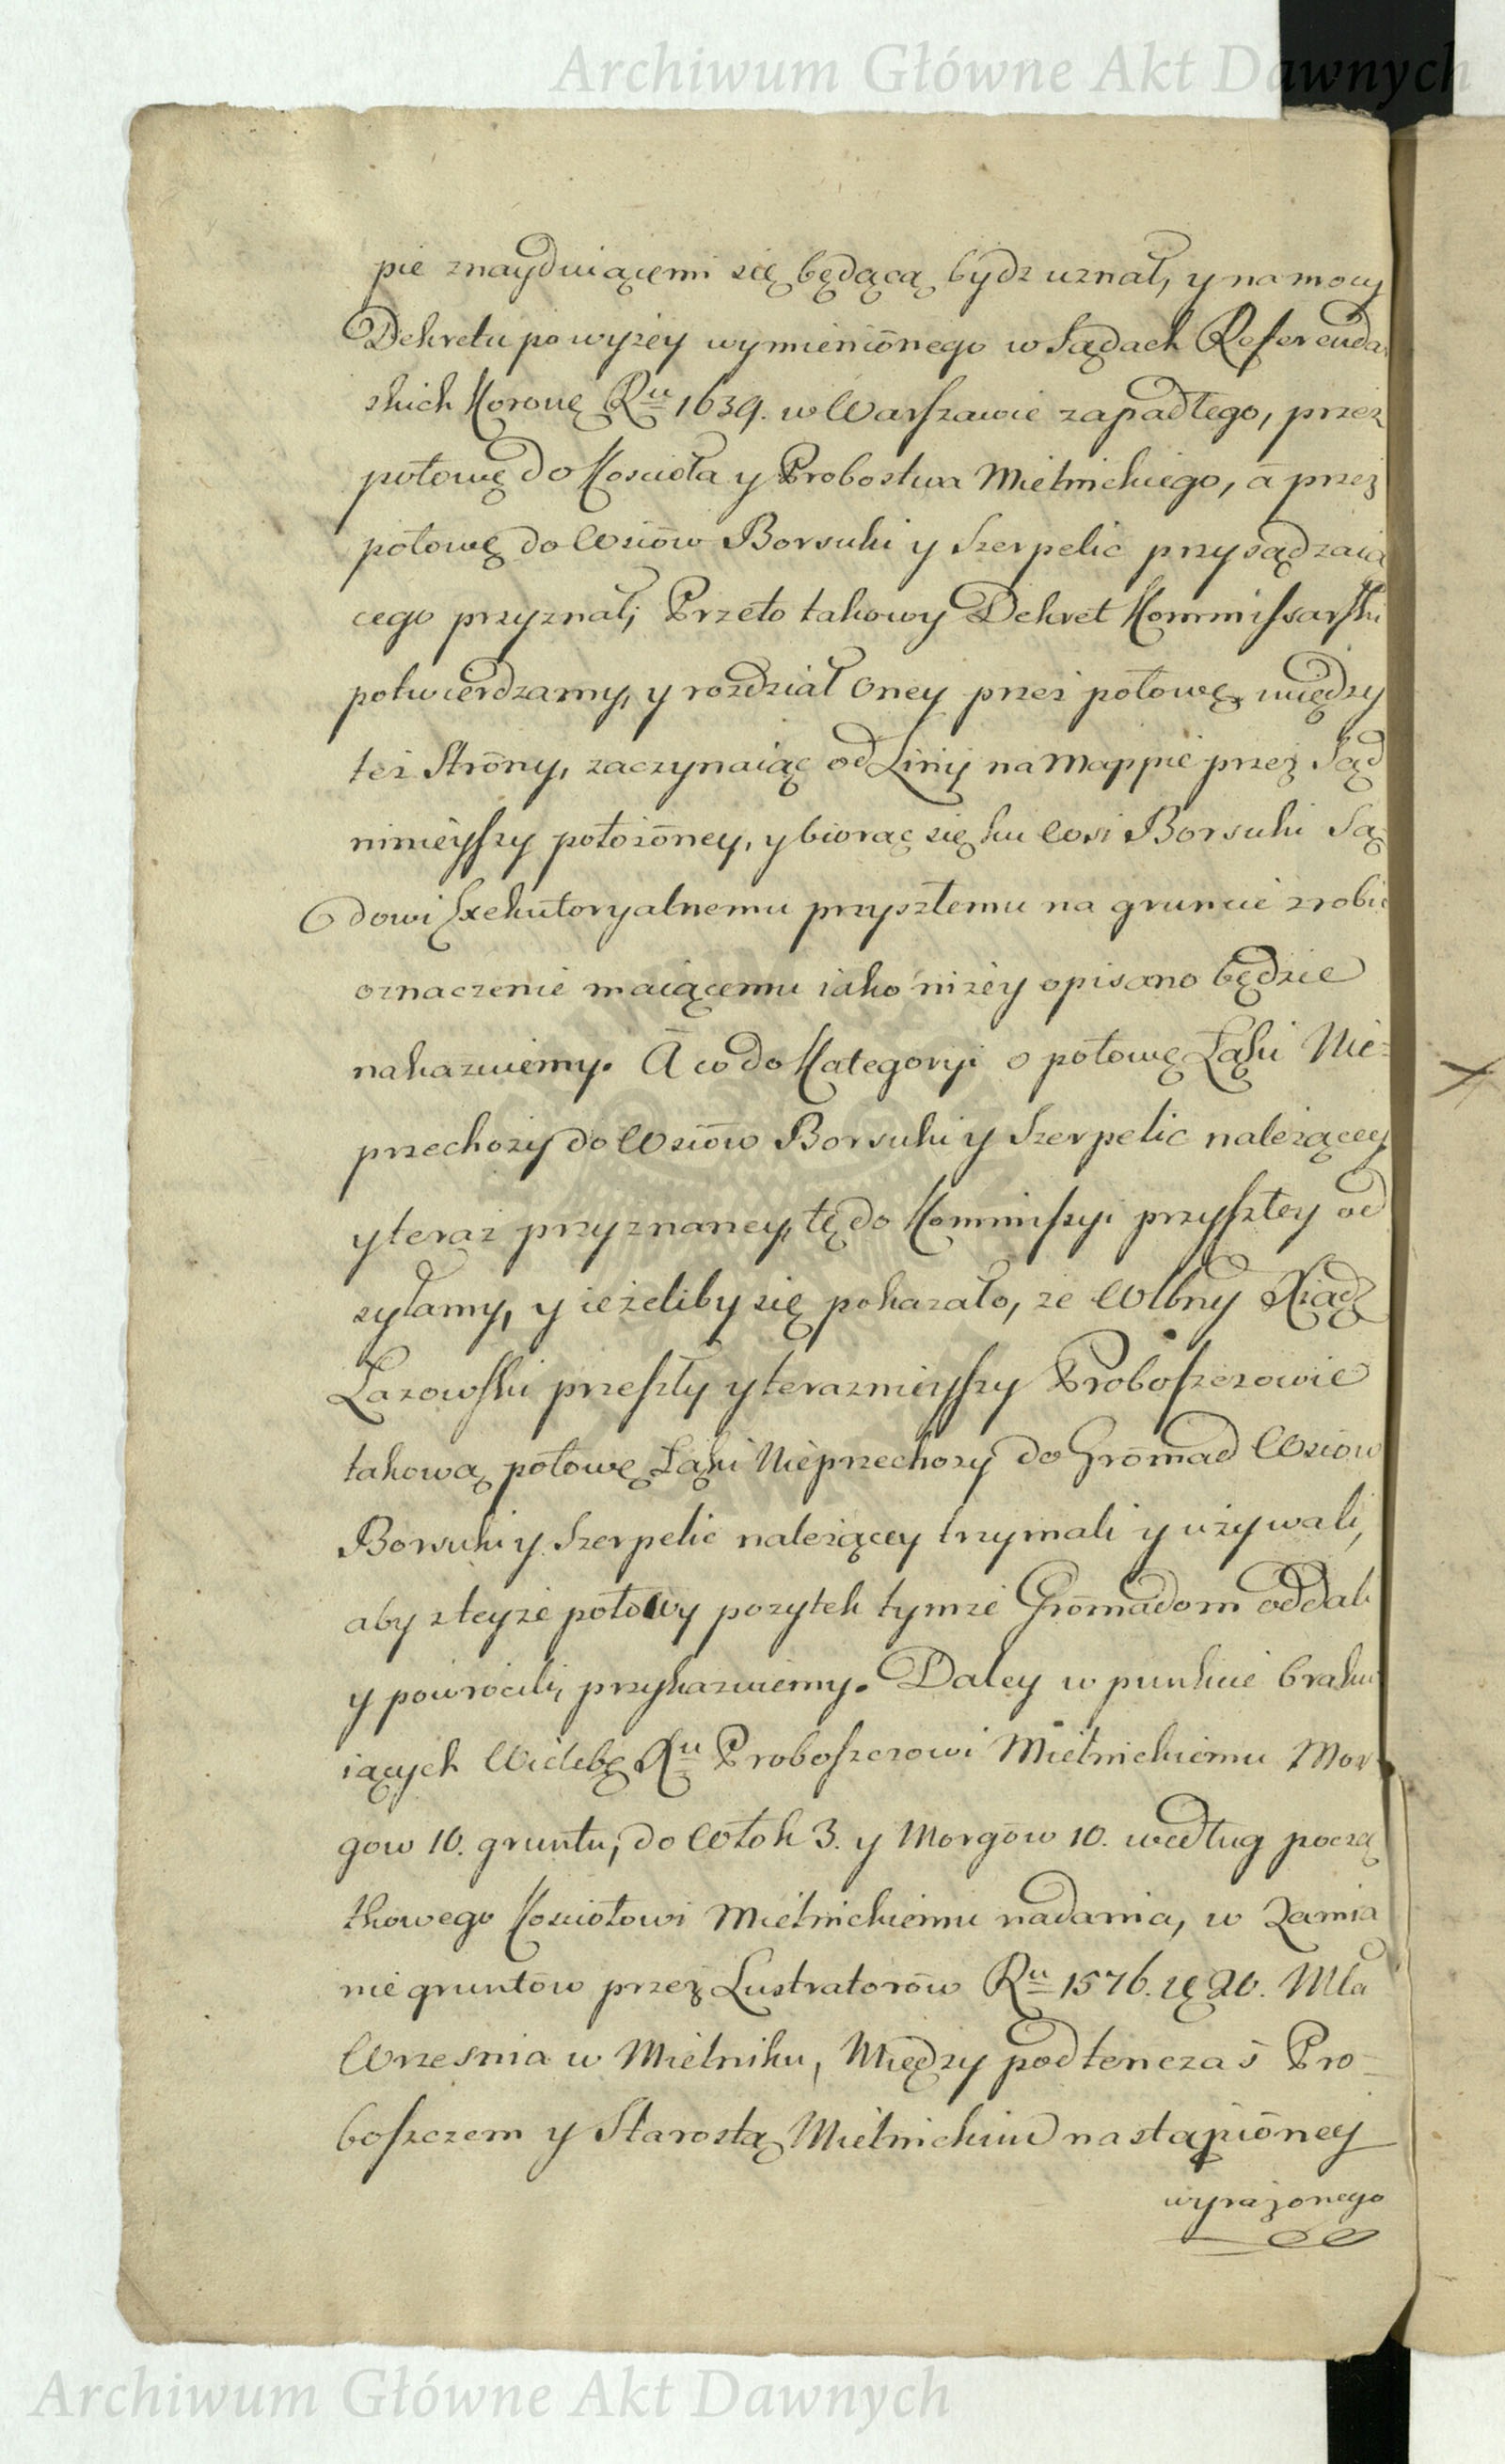 Archiwum Główne Akt Dawnych
pie znayduiącemi się będącą bydz uznał, y na mocy
Dekretu powyżey wymieniōnego w Sądach Referenda
skich Koronę Ru 1639. w Warszawie zapadłego, przez
połowę do Kościoła y Probostwa Mielnickiego, á przez
połowę do Wsiōw Borsuki y Szerpelic przysądzaią
cego przyznał; Przeto takowy Dekret Kommissarski
potwierdzamy, y rozdział Oney przez połowę między
też Strōny, zaczynaiąc od Linij na Mappie przez Sąd
ninieyszy położōney, y biorąc się ku Wsi Borsuki Są
dowi Exekutoryalnemu przyszłemu na gruncie zrobić
oznaczenie maiącemu iako niżey opisano będzie
nakazuiemy. A co do Kategoryi o połowę Łąki Nie=
przechozy do Wsiōw Borsuki y Szerpelic należącey
y teraz przyznaney, tę do Kommissyi przyszłey od
syłamy, y ieżeliby się pokazało, że Wlbny Xiądz
Łazowski przeszły y teraznieyszy Proboszczowie
takową połowę Łąki Nieprzechozy do Grōmad Wsiow
Borsuki y Szerpelic należącey trzymali y używali,
aby z teyże połowy pożytek tymże Grōmadom oddali
y powrōcili, przykazuiemy. Daley w punkcie braku
iących Proboszczowi Mielnickiemu Mor
gow 10. gruntu, do Włok 3. y Morgōw 10. według począ
tkowego Kościołowi Mielnickiemu nadania, w Zamia
nie gruntōw przez Lustratorōw Ru 1576. 20. Mca
Wrzesnia w Mielniku, Między podtenczas Pro-
boszczem y Starostą Mielnickim nastąpiōney
wyrażonego
Archiwum Główne Akt Dawnych